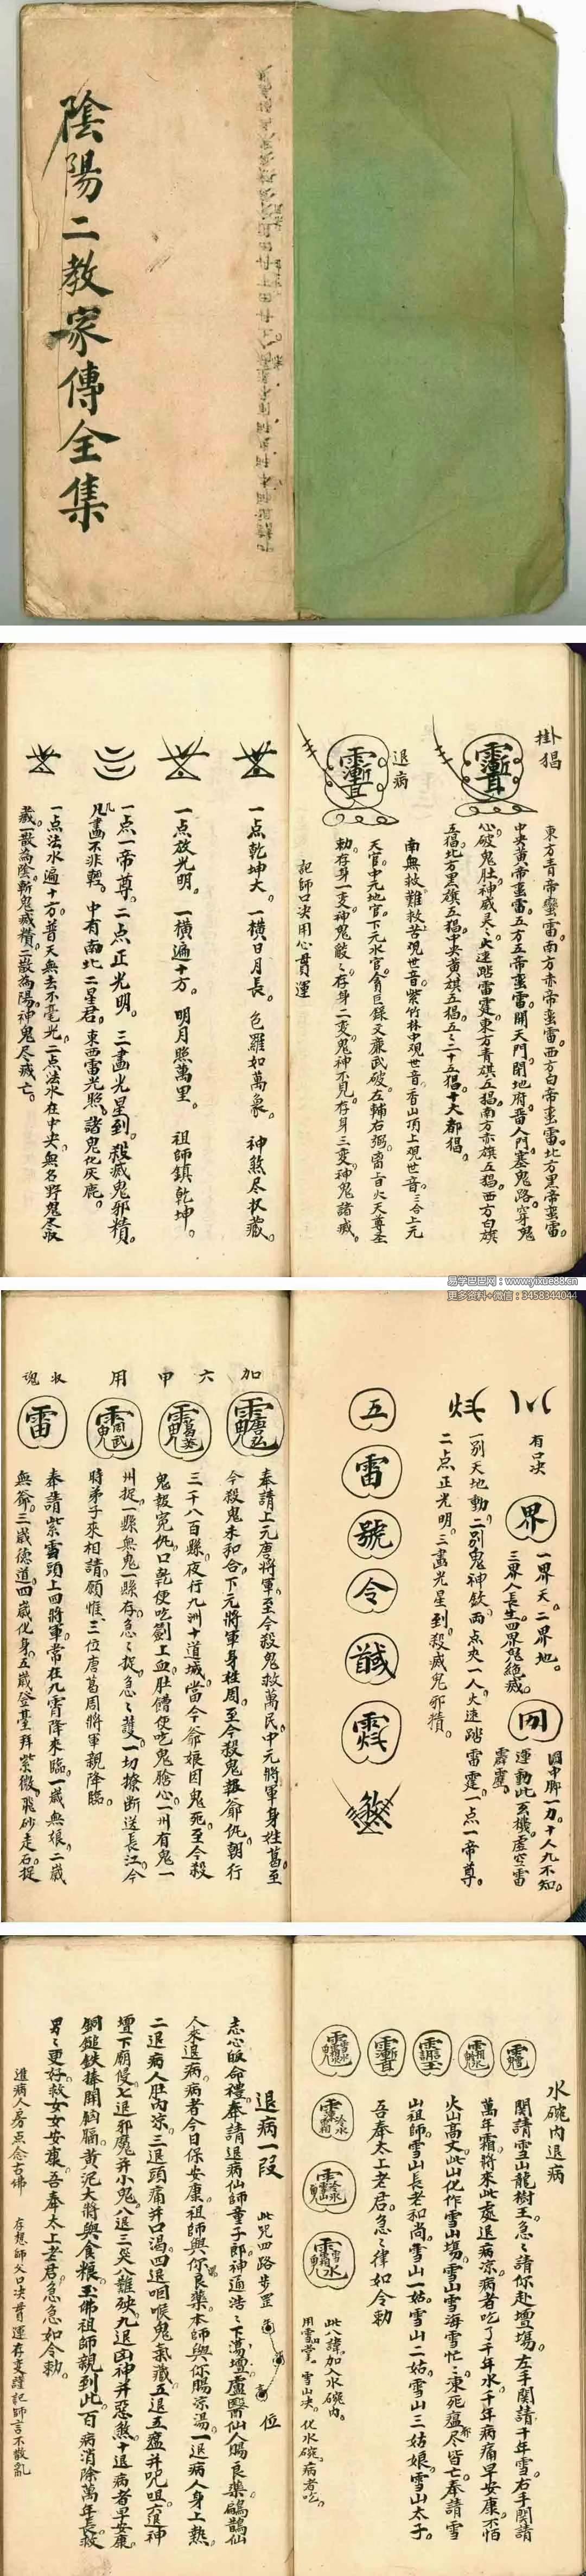 陰陽二教家傳全集
掛猖
東方青帝蠻雷。南方赤帝蛮雷。西方白帝蛮雷。北方黑帝蛮雷。
中央黄帝蛮雷。五方五帝蛮雷。開天門。閉地府。留人門。塞鬼路。穿鬼
心。破鬼肚。神威灵〻。火速踏雷霆。東方青旗五猖。南方赤旗五猖。西方白旗
五猖。北方黑旗五猖。中央黄旗五猖。五〻二十五猖。十大都猖。
退病
南無救難救苦观世音。紫竹林中观世音。香山頂上观世音。三合上元
天官。中元地官。下元水官。貪巨録文廉武破。左輔右弼。
勅存身一变。神鬼 〻。存身二变。鬼神不見。存身三变。神鬼諸滅。
記師口决用心貫運
一点乾坤大。一横日月長。包羅如萬象。神煞尽收藏。
一点放光明。一横遍十方。明月照萬里。祖師鎮乾坤。
一点一帝尊。二点正光明。三畵光星到。殺滅鬼邪精。
凡畵不非輕。中有南北二星君。東西雷光照。諸鬼化灰塵。
一点法水遍十方。普天無去不毫光。二点法水在中央。無名野鬼尽收
藏。一散為陰。斬鬼滅精。二散為陽。神鬼尽滅亡。
易学巴巴网：www.yixue88.cn
更多资料+微信：3458344044
有口决
界
一界天。二界地。
三界人長生。四界鬼絶滅。
圓中聊一力。十人九不知。
運動此玄機。虚空雷
霹靂。
一别天地動。二别鬼神欽。兩点夾一人。火速踏雷霆。一点一帝尊。
二点正光明。三畵光星到。殺滅鬼邪精。
五
雷
號
令
加
六
甲
用
收
魂
雷
奉請上元唐將軍。至今殺鬼救萬民。中元將軍身姓葛。至
今殺鬼未和合。下元將軍身姓周。至今殺鬼報爺仇。朝行
三千八百縣。夜行九洲十道城。當今爺娘因鬼死。至今殺
鬼報冤仇。口乾便吃劍上血。肚饑便吃鬼脸心。一州有鬼一
州捉。一縣無鬼一縣存。急〻捉。急〻護。一切撩断送長江。今
時弟子來相請。願惟三位唐葛周將軍親降臨。
奉請紫雲頭上四將軍。常在九霄降來臨。一歲無娘。二歲
無爺。三歲德道。四歲化身。五歲登臺拜紫微。飛砂走石。捉
水碗内退病
関請雪山龍樹王。急〻請你赴壇場。左手関請千年雪。右手関請
萬年霜。將來此處退病凉。病者吃了千年水。千年病痛早安康。不怕
火山高丈。此山化作雪山塲。雪山雪海雪忙〻。凍死瘟尽皆亡。奉請雪
山祖師。雪山長老和尚。雪山一姑。雪山二姑。雪山三姑娘。雪山太子。
吾奉太上老君。急〻律如令勅
此八諱加入水碗内。
用雪山決。化水碗。病者吃。
退病一段
此咒四路步罡
位
志心皈命禮。奉請退病仙師童子郎。神通浩〻下
人來退病。病者今日保安康。祖師與你良藥。本師與你賜凉湯。一退病人身上熱。
二退病人肚内凉。三退頭痛并口渴。四退咽喉鬼氣藏。五退五瘟并咒咀。六退神
壇下廟侵。七退邪魔并小鬼。八退三災八難殃。九退凶神并惡煞。十退病者早安康。
銅鎚鉄棒開胸膈。黄泥大將與食糧。玉佛祖師親到此。百病消除萬年長。救
男〻更好。救女女安康。吾奉太上老君急急如令勅。
進病人房点念古佛　存想師父口决貫運存变謹記師言不散亂